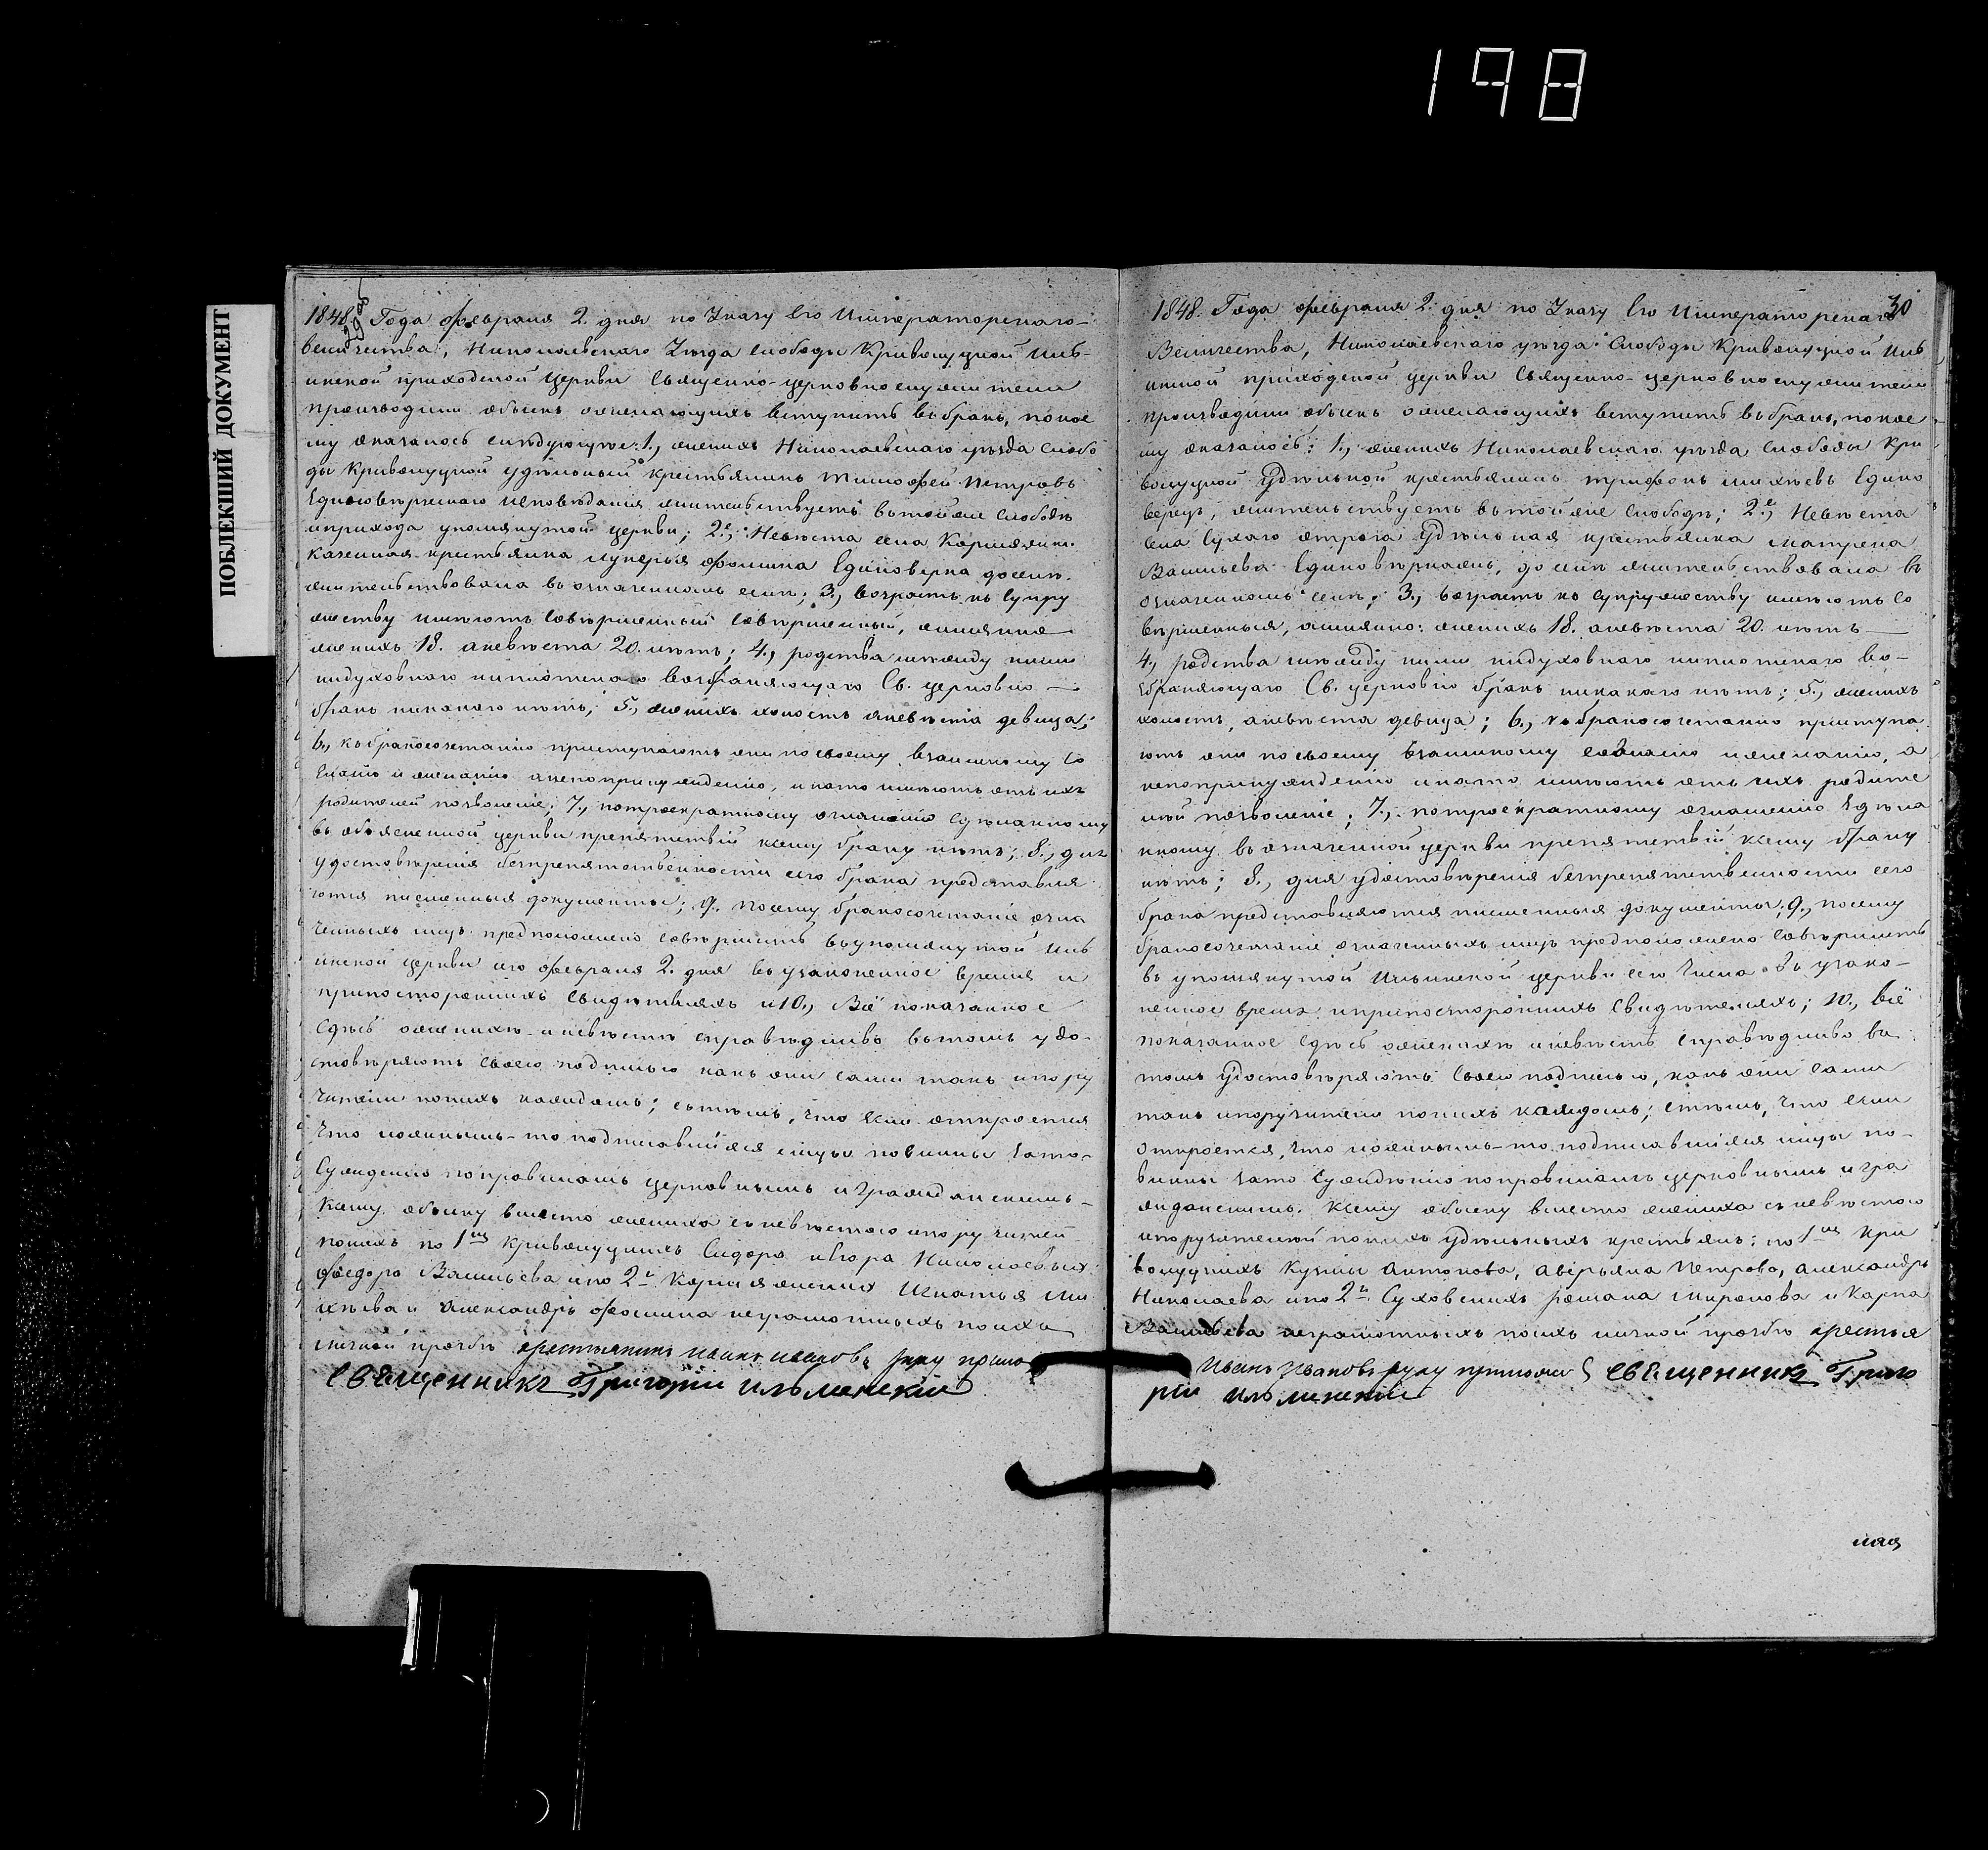 198
ПОБЛЕКШИЙ ДОКУМЕНТ
1848 Года февраля 2. дня по Указу Его Императорскаго
величества, Николаевскаго Уѣзда слободы Криволуцкой Иль-
инской приходской церкви Священно-церковнослужители
производили обыскъ о желающихъ вступить въ бракъ, по кое
му оказалось слѣдующее: 1., женихъ Николаевскаго уѣзда Слобо
ды Криволуцкой удѣльный крестьянинъ Тимофей Петровъ
Единовѣрческаго исповѣданія жительствуетъ въ той же слободѣ
и прихода упомянутой церкви; 2.е, Невѣста села
казенная крестьянка Лукерья Фомина Единовѣрка доселѣ
жительствовала въ означенномъ селѣ; 3., возрастъ къ супру
жеству имѣютъ совершенный совершенный, а именно
женихъ 18. а невѣста 20. лѣтъ; 4., родства между ними
ни духовнаго ни плотскаго возбраняющаго Св. церковію
бракъ никакого нѣтъ; 5., женихъ холостъ а невѣста девица;
6., къ бракосочетанію приступаютъ они по своему взаимному со
гласію и желанію а не по принужденію, и на то имѣютъ отъ ихъ
родителей позволеніе; 7., по троекратному оглашенію сдѣланному
въ объясненной церкви препятствій къ сему браку нѣтъ; 8., для
удостовѣренія безпрепятственности сего брака представля
ются писменныя документы; 9., посему бракосочетаніе озна
ченныхъ лицъ предположено совершить въ упомянутой Иль
инской церкви сего февраля 2. дня въ узаконенное время и
при постороннихъ свидѣтеляхъ и 10., Всё показанное
сдѣсь о женихѣ и невѣстѣ справѣдливо въ томъ удо-
стовѣряютъ своею подписью какъ они сами такъ и пору
чители по нихъ каждомъ; съ тѣмъ, что если откроется
что ложнымъ-то подписавшіяся лицы повинны за то
сужденію по правиламъ церковнымъ и гражданскимъ
Къ сему обыску вмѣсто жениха съ невѣстою и поручителей
по нихъ по 1мъ Криволуцкихъ Сидора и Егора Николаевыхъ
Федора Васильева и по 2й Игнатья Ми
хѣева и Александръ Фомина неграмотныхъ по ихъ
личной прозбѣ крестьянинъ Иванъ Ивановъ руку прило
Священникъ Григорій Ильминскій
30
1848. Года февраля 2. дня по Указу Его Императорскаго
Величества, Николаевскаго уѣзда Слободы Криволуцкой Иль
инской приходской церкви Священно-церковнослужители
производили обыскъ о желающихъ вступить въ бракъ, по кое
му оказалось: 1., женихъ Николаевскаго уѣзда Слободы Кри
волуцкой Удѣльной крестьянинъ Трифонъ Михѣевъ Едино
верецъ, жительствуетъ въ той же слободѣ; 2.е, Невѣста
села Сухаго отрога Удѣльная крестьянка Матрена
Васильева Единовѣрка, доселѣ жительствовала въ
означенномъ селѣ; 3., возрастъ къ супружеству имѣютъ со
вѣршенныя, а именно: женихъ 18. а невѣста 20. лѣтъ
4., родства между ними ни духовнаго ни плотскаго во-
збраняющаго Св. церковію бракъ никакаго нѣтъ; 5., женихъ
холостъ, а невѣста девица; 6., къ бракосочетанію приступа
ютъ они по своему взаимному согласію и желанію, а
не по принужденію и на то имѣютъ отъ ихъ родите
лей позволеніе; 7., по троекратному оглашенію здѣла
нному въ означенной церкви препятствій къ сему браку
нѣтъ; 8., для удостовѣренія безпрепятственности сего
брака представляются писменныя документы; 9., посему
бракосочетаніе означенныхъ лицъ предположено совѣршить
въ упомянутой Ильинской церкви сего числа въ узако-
ненное время и при постороннихъ свидѣтеляхъ; 10., всё
показанное сдѣсь о женихѣ и невѣстѣ справѣдливо въ
томъ удостовѣряютъ своею подписью, какъ они сами
такъ и поручители по нихъ каждомъ; съ тѣмъ, что если
откроется, что ложнымъ-то подписавшіяся лицы по-
винны за то сужденію по правиламъ церковнымъ и гра
жданскимъ. Къ сему обыску вмѣсто жениха съ невѣстою
и поручителей по нихъ удѣльныхъ крестьянъ: по 1мъ Кри
волуцкихъ Кузмы Антонова, Аверьяна Петрова, Александръ
Николаева и по 2й Суховскихъ Романа Миронова и Карпа
Васильева неграмотныхъ по ихъ личной прозбѣ крестья
Иванъ Ивановъ руку приложи Священникъ Григо
рій Ильминскій